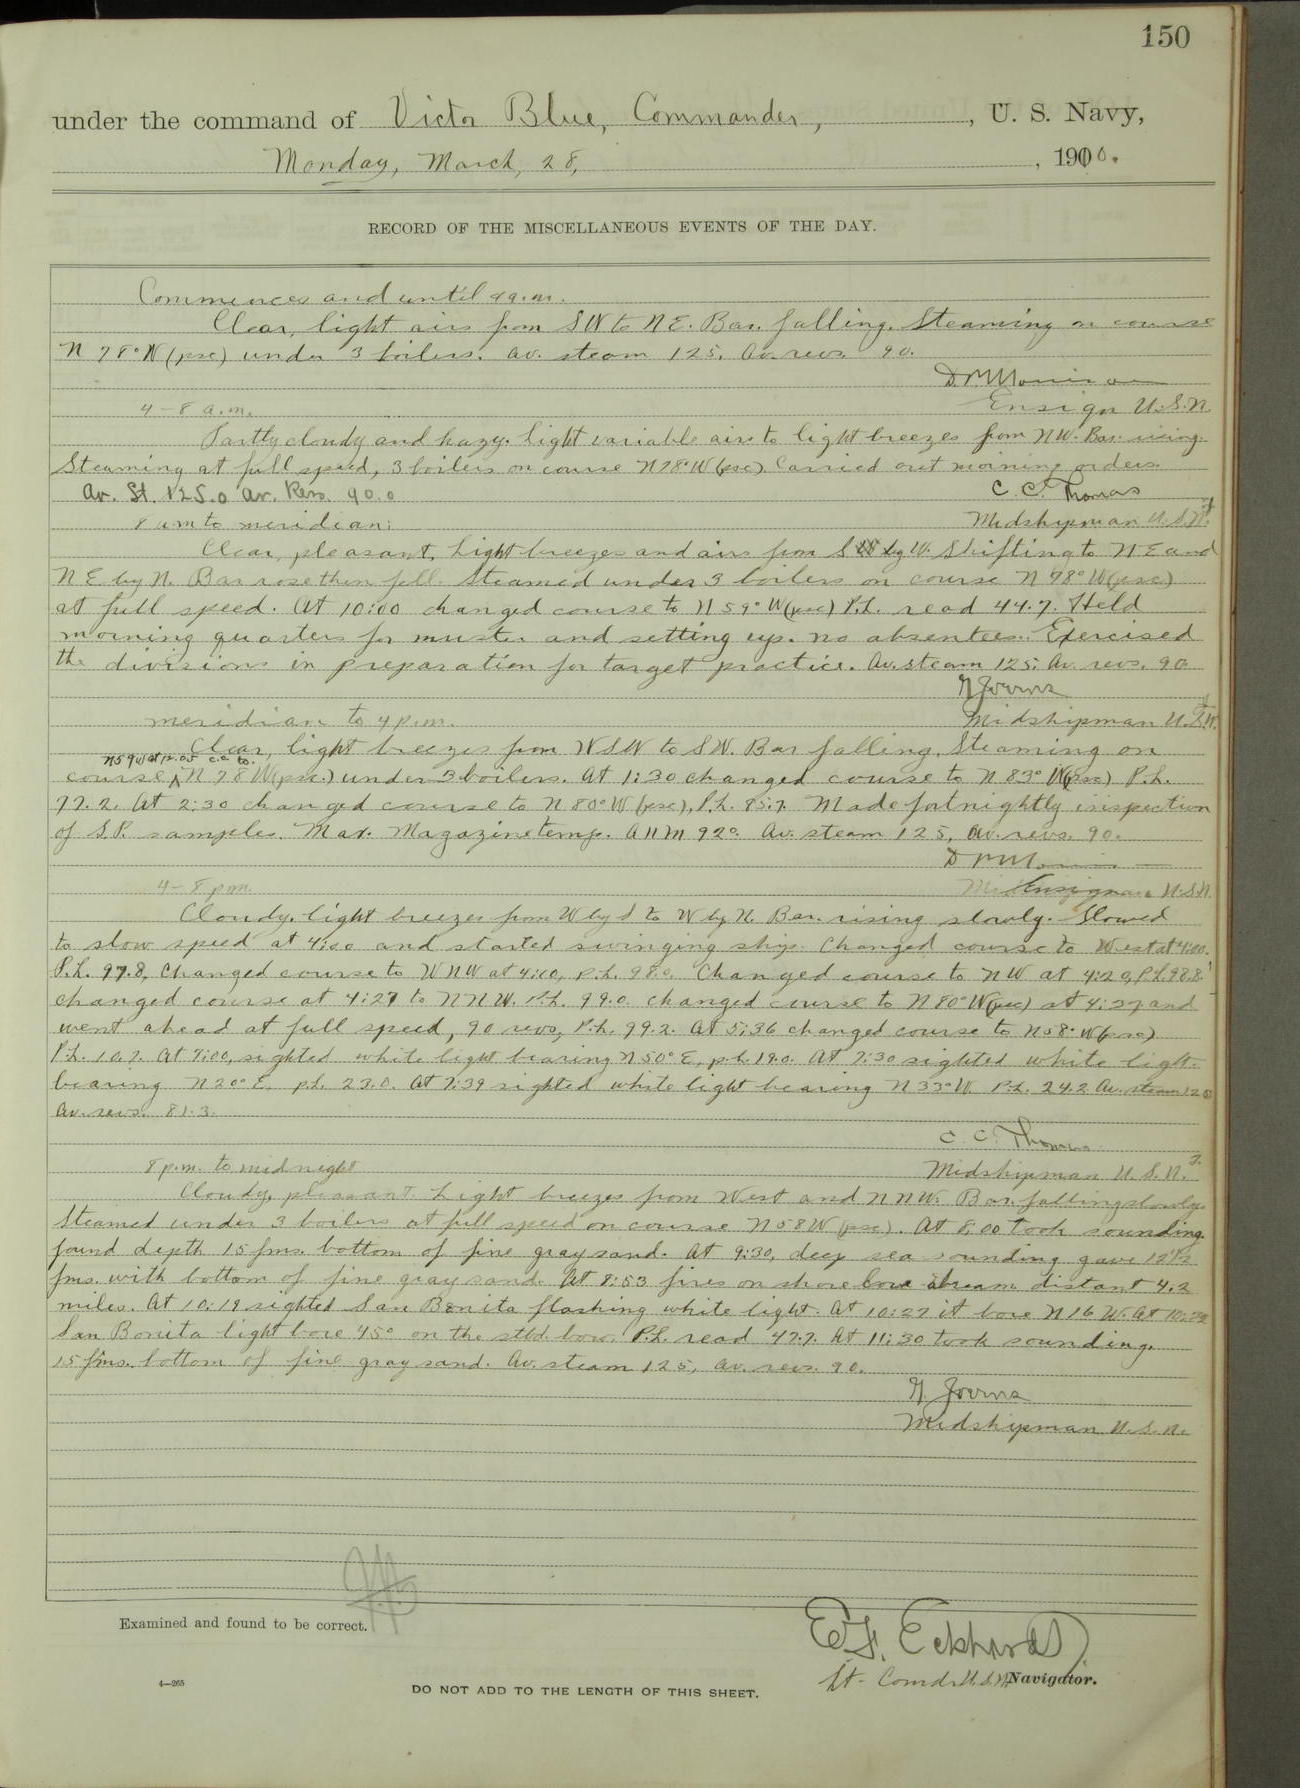 150
under the command of Victor Blue, Commander, , U. S. Navy,
Monday, March, 28, , 1910.
RECORD OF THE MISCELLANEOUS EVENTS OF THE DAY.
Commences and until 4 a.m.
Clear, light airs from SW to NE. Bar. falling. Steaming on course
N 78° W (psc) under 3 boilers. Av. steam 125. Av. revs. 90.
Ensign U.S.N.
4-8 a.m.
Partly cloudy and hazy. light variable airs to light breezes from NW. Bar. rising.
Steaming at full speed, 3 boilers on course N78°W (psc) Carried out morning orders.
Av. St. 125.0 Av. Revs. 90.0
C. C. Thomas
8 a.m to meridian:
Midshipman U.S.N.
Clear, pleasant. Light breezes and airs from S by W. Shifting to NE and
NE by N. Bar rose then fell. Steamed under 3 boilers on course N 78° W (psc)
at full speed. At 10:00 changed course to N 59° W (psc) P.L. read 44.7. Held
morning quarters for muster and setting up. no absentees. Exercised
the divisions in preparation for target practice. Av. steam 125. Av. revs. 90
Midshipman U.S.N.
meridian to 4 p.m.
Clear, light breezes from WSW to SW. Bar falling. Steaming on
course N 78 W (psc) under 3 boilers. At 1:30 changed course to N 83° W (psc) P.L.
77.2. At 2:30 changed course to N 80° W (psc), P.L. 85.7. Made fortnightly inspection
of S.P. samples. Max. Magazine temp. 92°. Av. steam 125, av. revs. 90.
Ensign U.S.N.
4-8 p.m.
Cloudy. light breezes from W by S to W by N. Bar. rising slowly. Slowed
to slow speed at 4:00 and started swinging ship. Changed course to West at 4:00.
P.L. 97.8, Changed course to WNW at 4:10, P.L. 98.0. Changed course to NW at 4:20, P.L. 98.8
changed course at 4:27 to NNW. P.L. 99.0. changed course to N 80° W (psc) at 4:37 and
went ahead at full speed, 90 revs, P.L. 99.2. At 5:36 changed course to N 58° W (psc)
P.L. 10.7. At 7:00, sighted white light bearing N 50° E, p.l. 19.0. At 7:30 sighted white light
bearing N 20° E, p.l. 23.0. At 7:39 sighted white light bearing N 33° W. P.L. 24.2 Av. steam 125
Av. revs. 81.3.
C. C. Thomas
8 p.m. to midnight
Midshipman U.S.N.
Cloudy, pleasant. Light breezes from West and NNW. Bar. falling slowly.
Steamed under 3 boilers at full speed on course N 58 W (psc). At 8:00 took sounding.
found depth 15 fms. bottom of fine gray sand. At 9:30, deep sea sounding gave 12 1/2
fms. with bottom of fine gray sand. At 8:53 fires on shore bore abeam distant 4.2
miles. At 10:19 sighted San Benita flashing white light. At 10:27 it bore N 16 W. At
San Bonita light bore 45° on the stbd. bow. P.L. read 47.7. At 11:30 took sounding.
15 fms. bottom of fine gray sand. Av. steam 125, av. revs. 90.
Midshipman U.S.N.
Examined and found to be correct.
E. F. Eckhardt
Lt. Comdr U.S.N. Navigator.
4—265
DO NOT ADD TO THE LENGTH OF THIS SHEET.